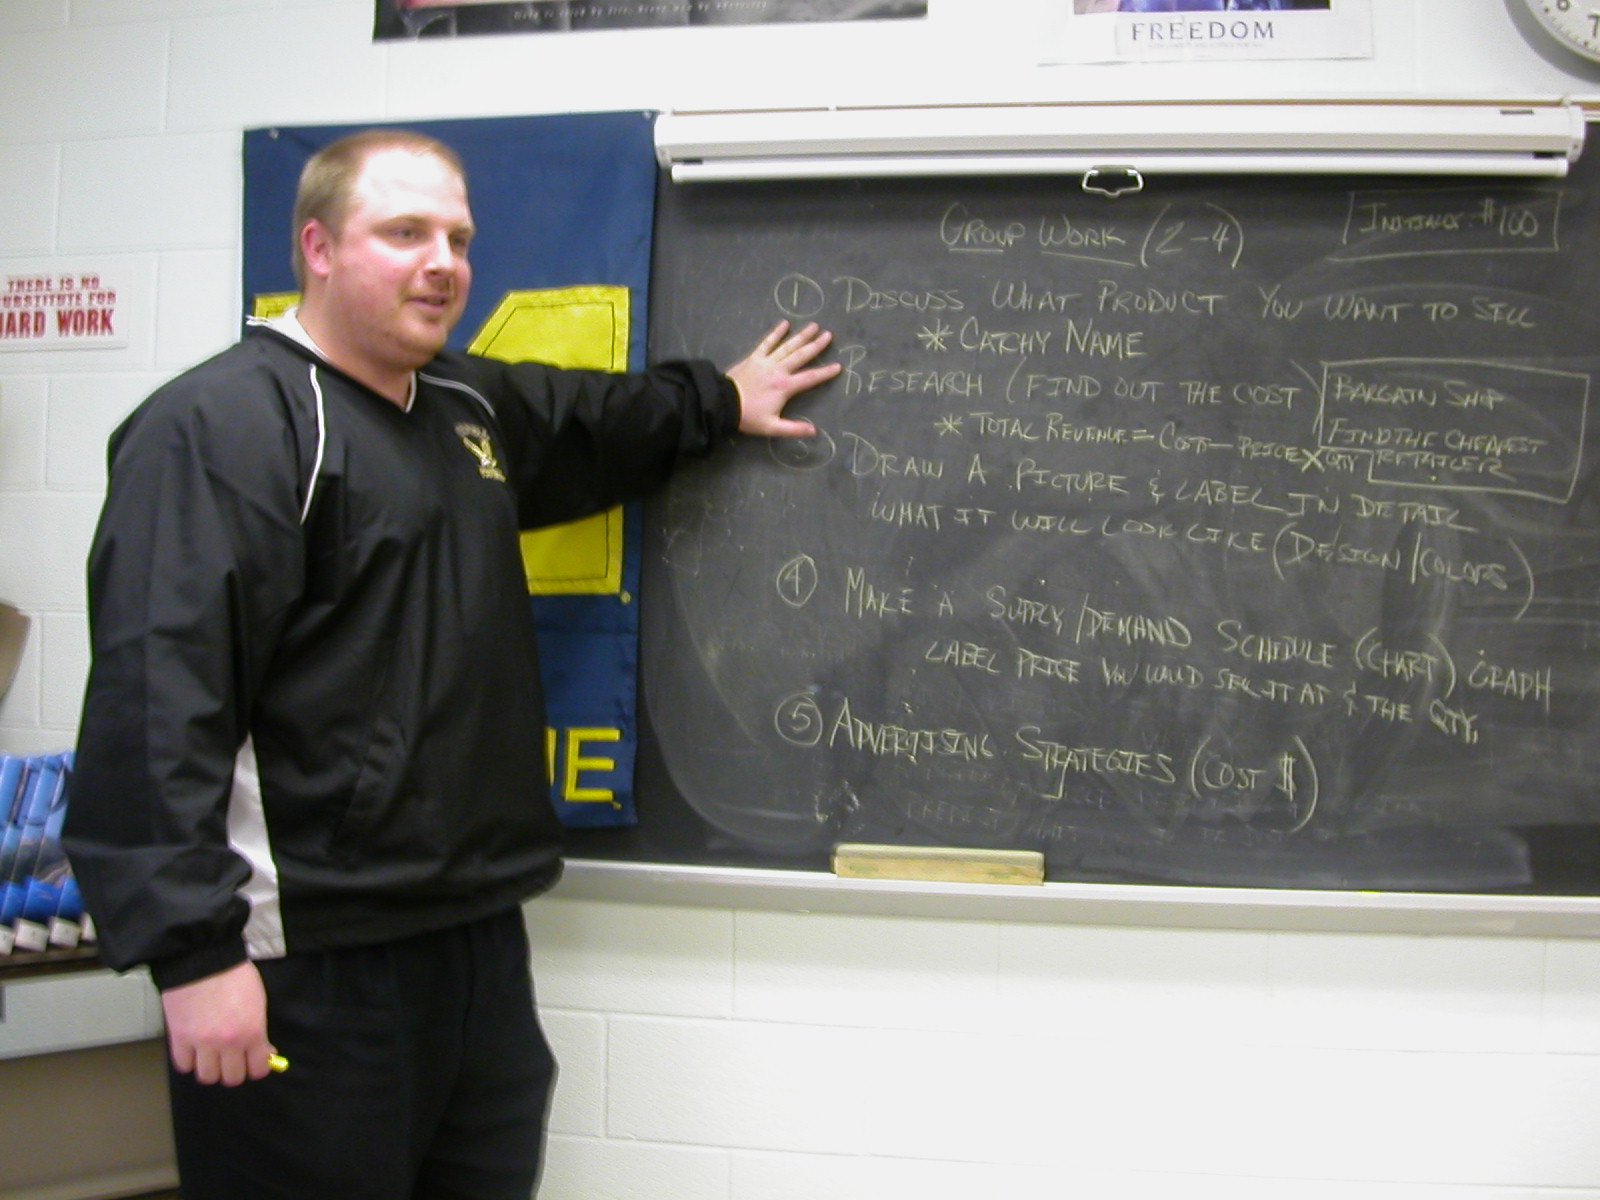 FREEDOM
8
7
THERE IS NO
SUBSTITUTE FOR
HARD WORK
GROUP WORK (2-4)
INITIALLY: $100
① DISCUSS WHAT PRODUCT YOU WANT TO SELL
* CATCHY NAME
RESEARCH (FIND OUT THE COST)
BARGAIN SHOP
FIND THE CHEAPEST
RETAILER
* TOTAL REVENUE = COST - PRICE X QTY
3 DRAW A PICTURE & LABEL IN DETAIL
WHAT IT WILL LOOK LIKE (DESIGN/COLORS)
④ MAKE A SUPPLY/DEMAND SCHEDULE (CHART) GRAPH
LABEL PRICE YOU WOULD SELL IT AT & THE QTY.
⑤ ADVERTISING STRATEGIES (COST $)
UE